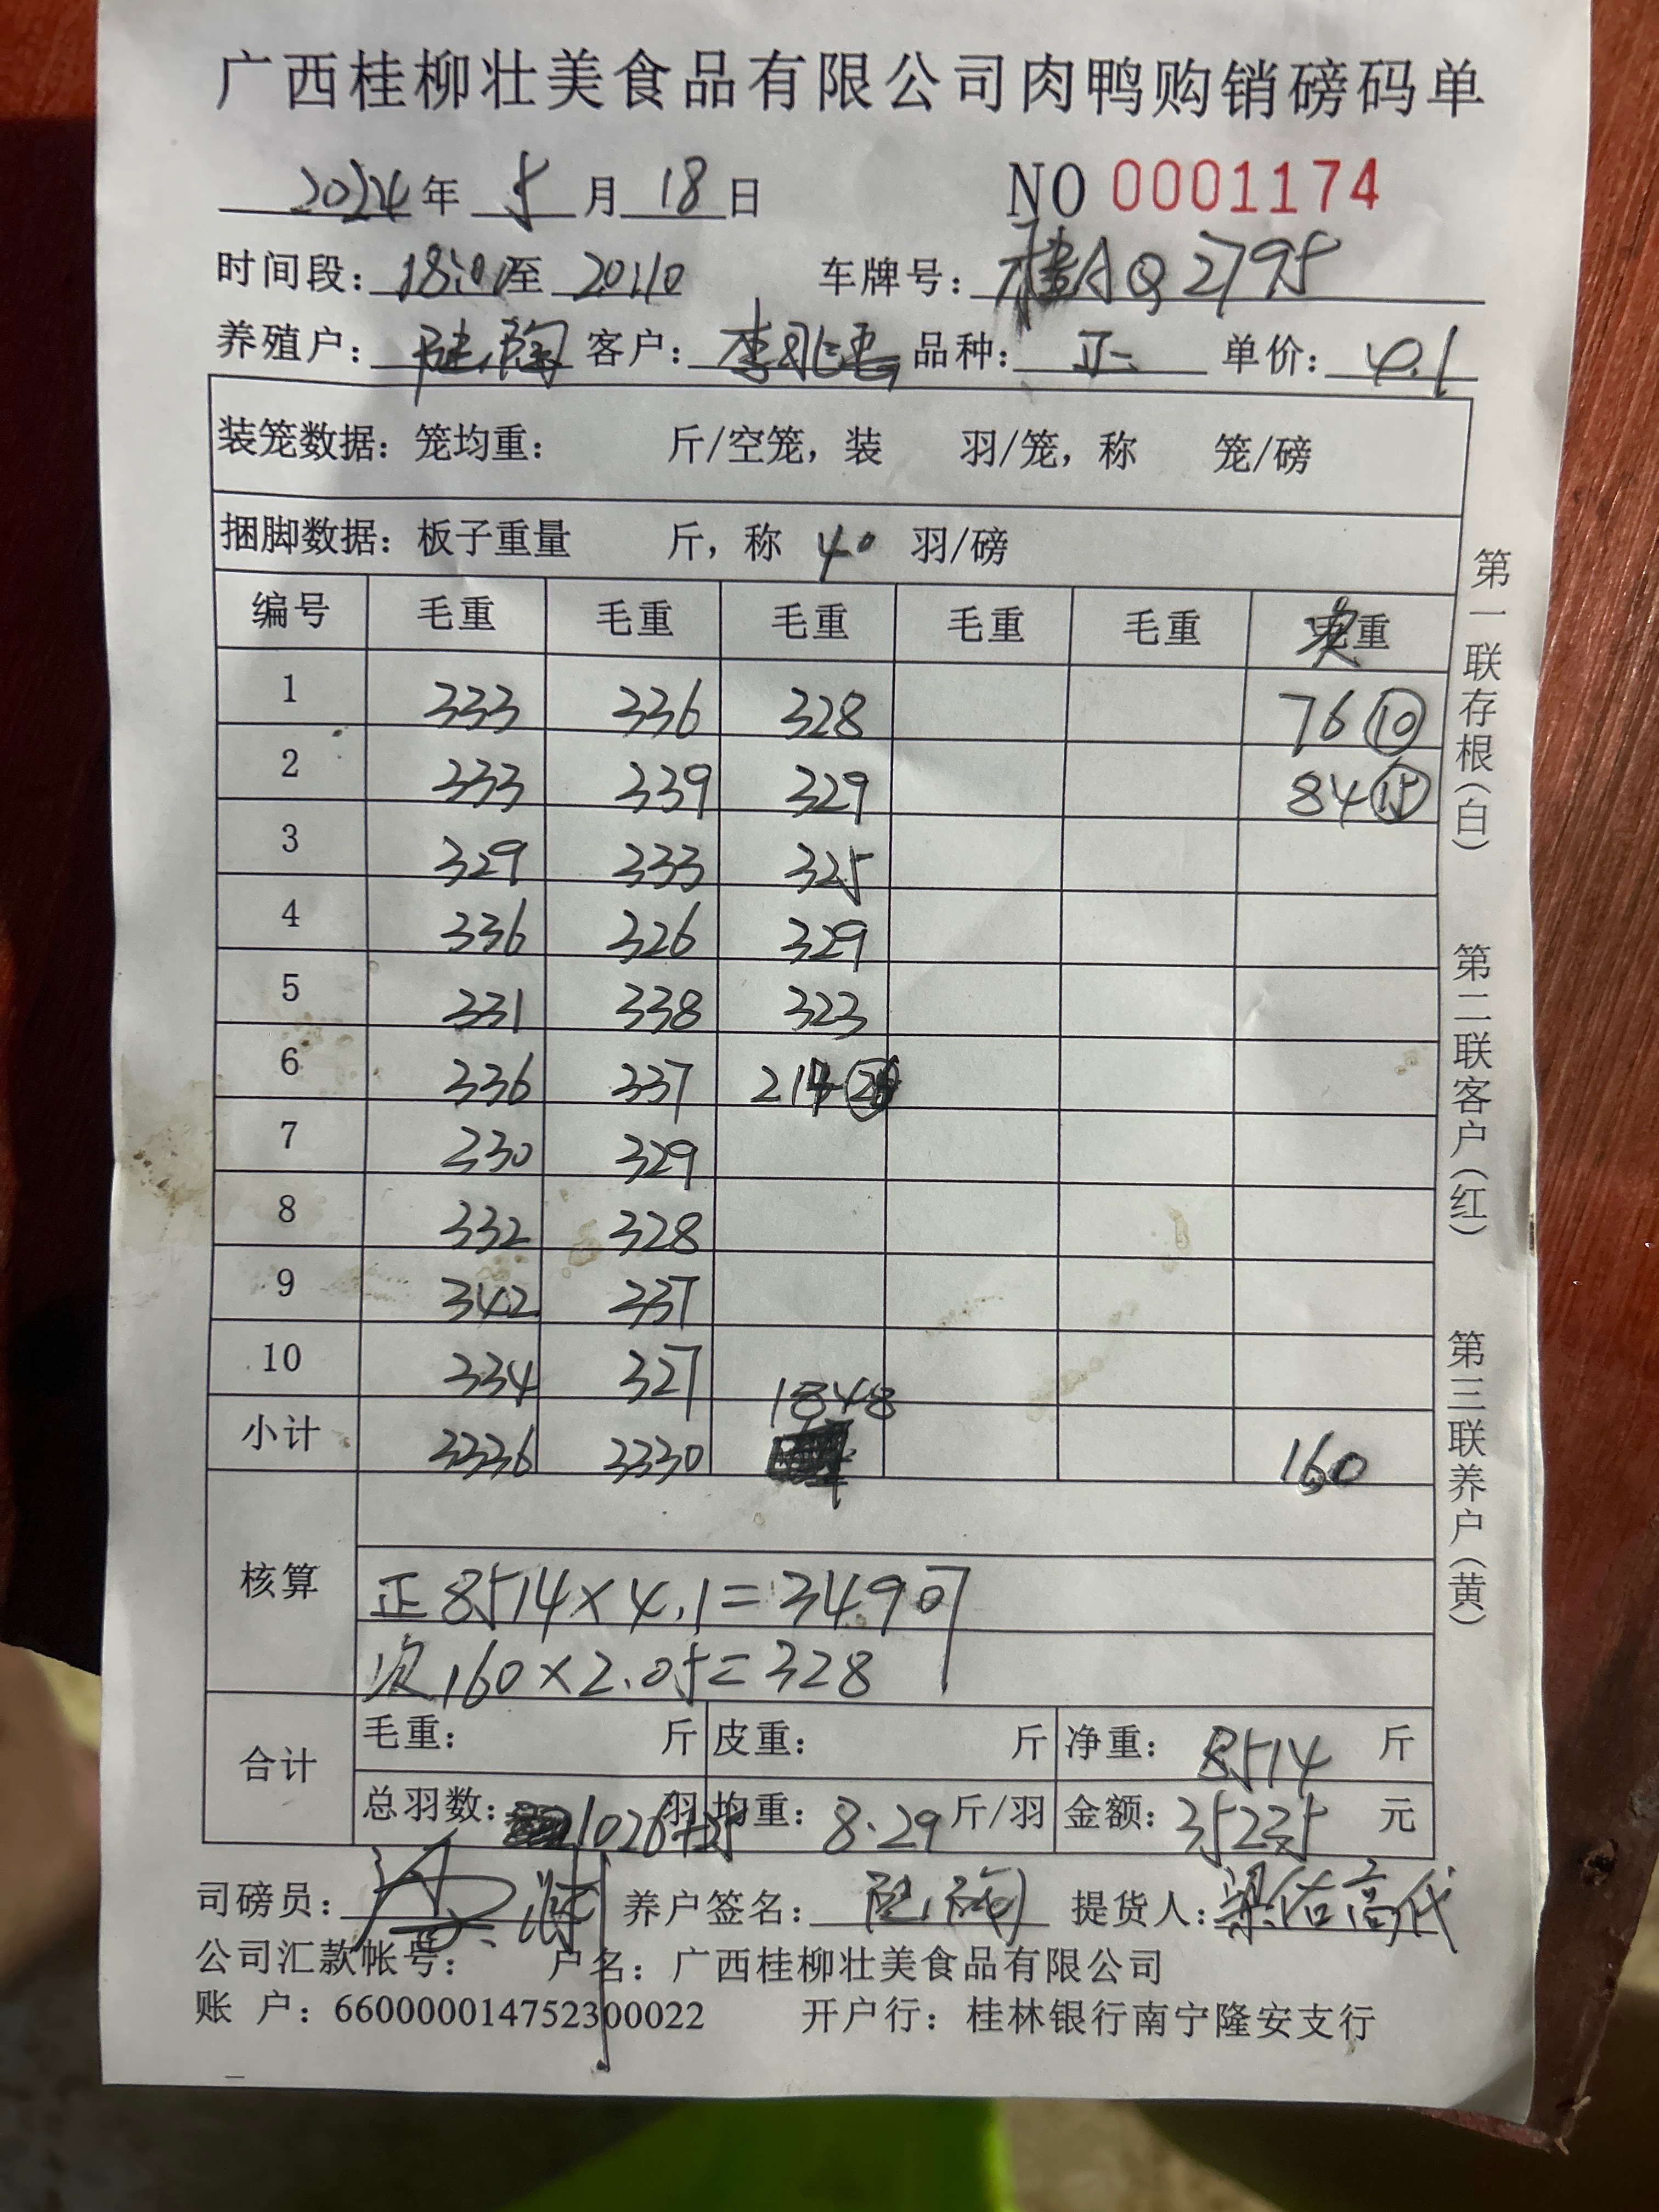 广西桂柳壮美食品有限公司肉鸭购销磅码单
2024年 5 月 18 日 NO 0001174
时间段：18:00至 20:10 车牌号：桂AQ2795
养殖户： 客户：李 品种：正 单价：4.1
装笼数据：笼均重： 斤/空笼，装 羽/笼，称 笼/磅
捆脚数据：板子重量 斤，称 40 羽/磅
编号 毛重 毛重 毛重 毛重 毛重 次重
1 333 336 328 76 ⑩
2 333 339 329 84 ⑮
3 329 333 325
4 336 326 329
5 331 338 323
6 336 337 214
7 330 329
8 332 328
9 342 337
10 334 327
小计 3336 3330 1848 160
核算
正 8514×4.1=34907
次 160×2.05=328
合计
毛重： 斤 皮重： 斤 净重： 8514 斤
总羽数： 1026+25 羽 均重： 8.29 斤/羽 金额：35235 元
司磅员： 养户签名： 提货人：梁佑高代
公司汇款帐号： 户名：广西桂柳壮美食品有限公司
账 户：660000014752300022 开户行：桂林银行南宁隆安支行
第一联存根（白） 第二联客户（红） 第三联养户（黄）